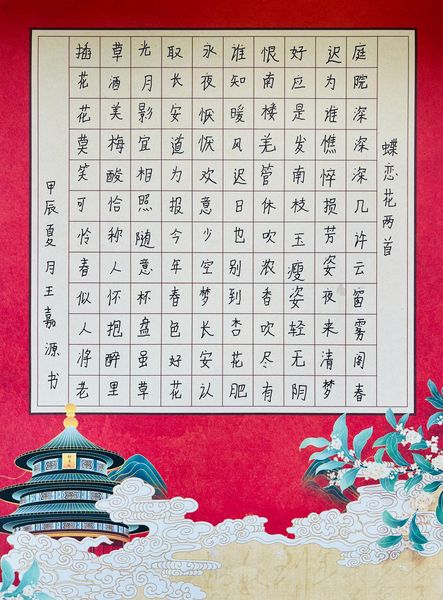 蝶恋花两首
庭院深深深几许云窗雾阁春
迟为谁憔悴损芳姿夜来清梦
好应是发南枝玉瘦姿轻无阴
恨南楼羌管休吹浓香吹尽有
谁知暖风迟日也别到杏花肥
永夜恹恹欢意少空梦长安认
取长安道为报今年春色好花
光月影宜相照随意杯盘虽草
草酒美梅酸恰称人怀抱醉里
插花花莫笑可怜春似人将老
甲辰夏月王嘉源书